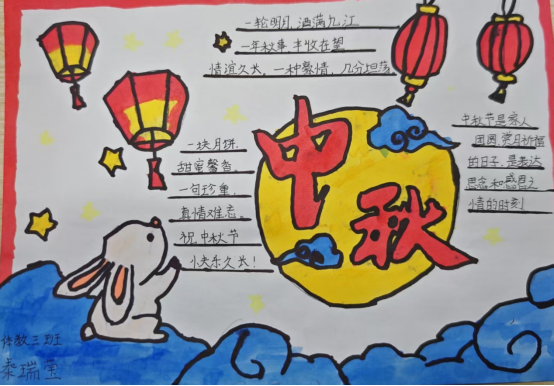 一轮明月,洒满九江
一年秋事,丰收在望
情谊久长,一种豪情,几分坦荡
一块月饼,
甜蜜馨香,
一句珍重,
真情难忘。
祝中秋节
快乐久长!
中秋
中秋节是家人
团圆赏月祈福
的日子,是表达
思念和感恩之
情的时刻
体教三班
秦瑞莹